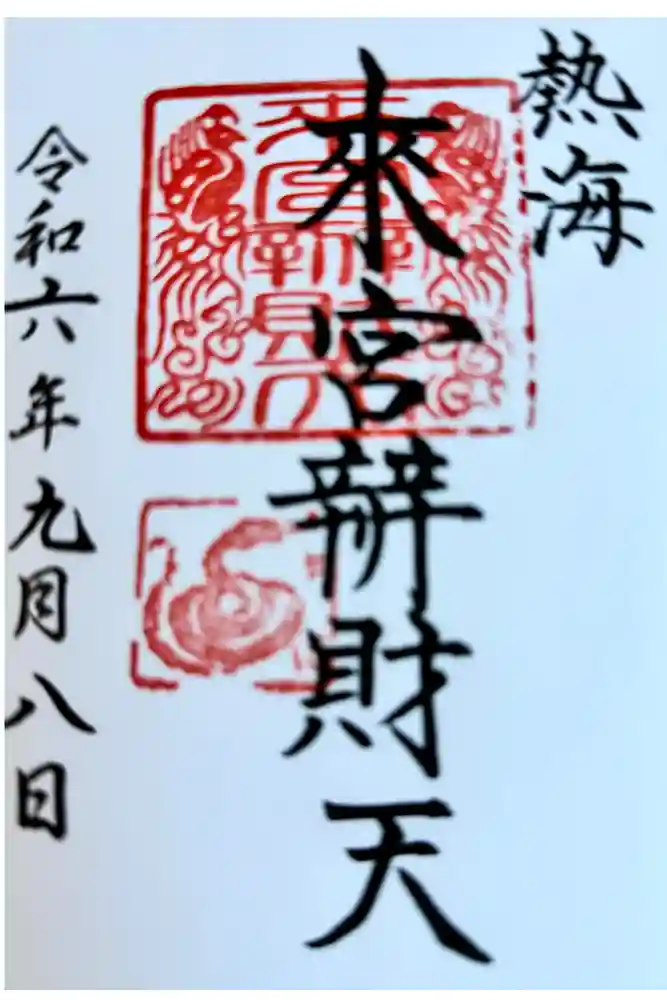 熱海
來宮辨財天
令和六年九月八日